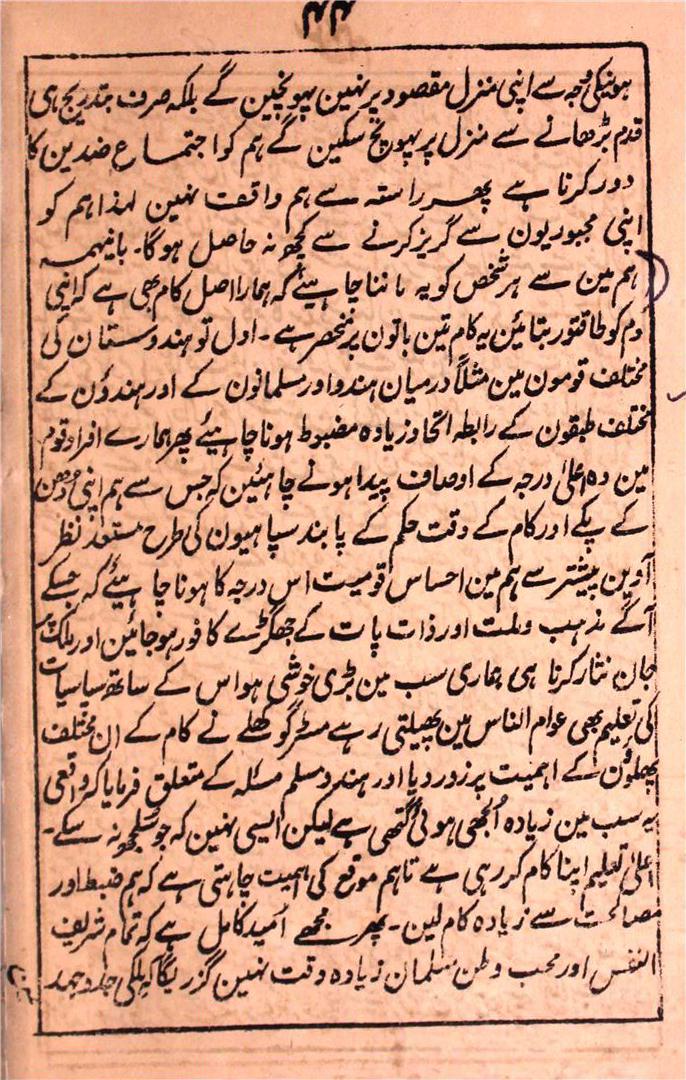 ۴۴
ہونیکی وجہ سے اپنی منزل مقصود پر نہین پہونچین گے بلکہ صرف بتدریج ہی
قدم بڑھانے سے منزل پر پہونچ سکین گے ہم کو اجتماع ضدین کا
دور کرنا ہے پھر راستہ سے ہم واقف نہین لہذا ہم کو
اپنی مجبوریون سے گریز کرنے سے کچھ نہ حاصل ہوگا۔ باینہمہ
ہم مین سے ہر شخص کو یہ ماننا چاہیئے کہ ہمارا اصل کام بھی ہے کہ اپنی
قوم کو طاقتور بنائین یہ کام تین باتون پر منحصر ہے۔ اول تو ہندوستان کی
مختلف قومون مین مثلاً درمیان ہندو اور مسلمانون کے اور ہندؤن کے
مختلف طبقون کے رابطہ اتحاد زیادہ مضبوط ہونا چاہیئے پھر ہمارے افراد قوم
مین وہ اعلیٰ درجہ کے اوصاف پیدا ہونے چاہئین کہ جس سے ہم اپنی دھن
کے پکے اور کام کے وقت حکم کے پابند سپاہیون کی طرح مستعد نظر
آوین پیشتر سے ہم مین احساس قومیت اس درجہ کا ہونا چاہیئے کہ جسکے
آگے مذہب و ملت اور ذات پات کے جھگڑے کافور ہوجائین اور ملک پر
جان نثار کرنا ہی ہماری سب مین بڑی خوشی ہو اس کے ساتھ سیاسیات
کی تعلیم بھی عوام الناس مین پھیلتی رہے مسٹر گوکھلے نے کام کے ان مختلف
پھلوؤن کے اہمیت پر زور دیا اور ہندو مسلم مسئلہ کے متعلق فرمایا کہ واقعی
یہ سب مین زیادہ اُلجھی ہوئی گتھی ہے لیکن ایسی نہین کہ جو سلجھ نہ سکے۔
اعلیٰ تعلیم اپنا کام کر رہی ہے تاہم موقع کی اہمیت چاہتی ہے کہ ہم ضبط اور
مصالحت سے زیادہ کام لین۔ پھر مجھے اُمید کامل ہے کہ تمام شریف
النفس اور محب وطن مسلمان زیادہ وقت نہین گزریگا کہ ملکی جد و جہد